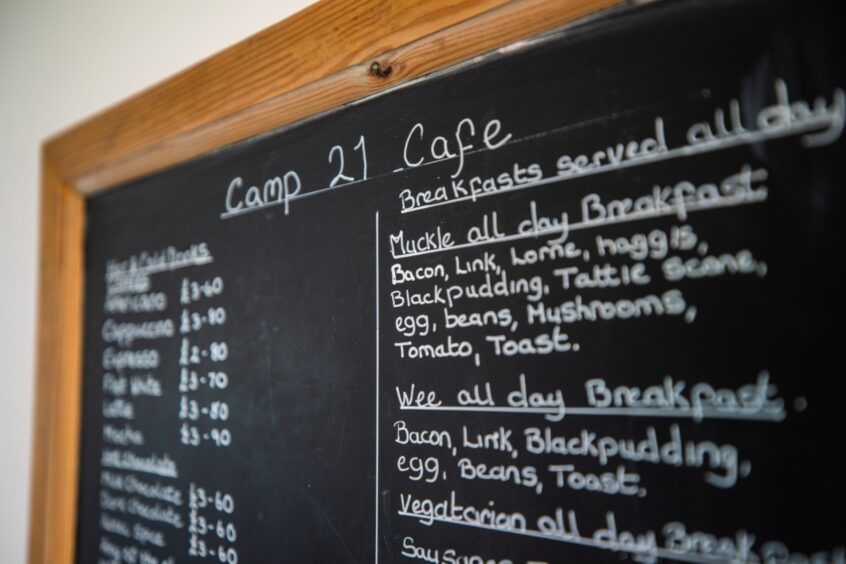 Camp 21 Cafe
Hot & Cold Drinks
Americano £3-60
Cappuccino £3-80
Espresso £2-80
Flat White £3-70
Latte £3-80
Mocha £3-90
Hot Chocolate
Milk Chocolate £3-60
Dark Chocolate £3-60
Spice £3-60
Breakfasts served all day
Muckle all day Breakfast.
Bacon, Link, Lorne, haggis,
Blackpudding, Tattie scone,
egg, beans, Mushrooms,
Tomato, Toast.
Wee all day Breakfast.
Bacon, Link, Blackpudding,
egg, Beans, Toast.
Vegatarian all day Breakfast